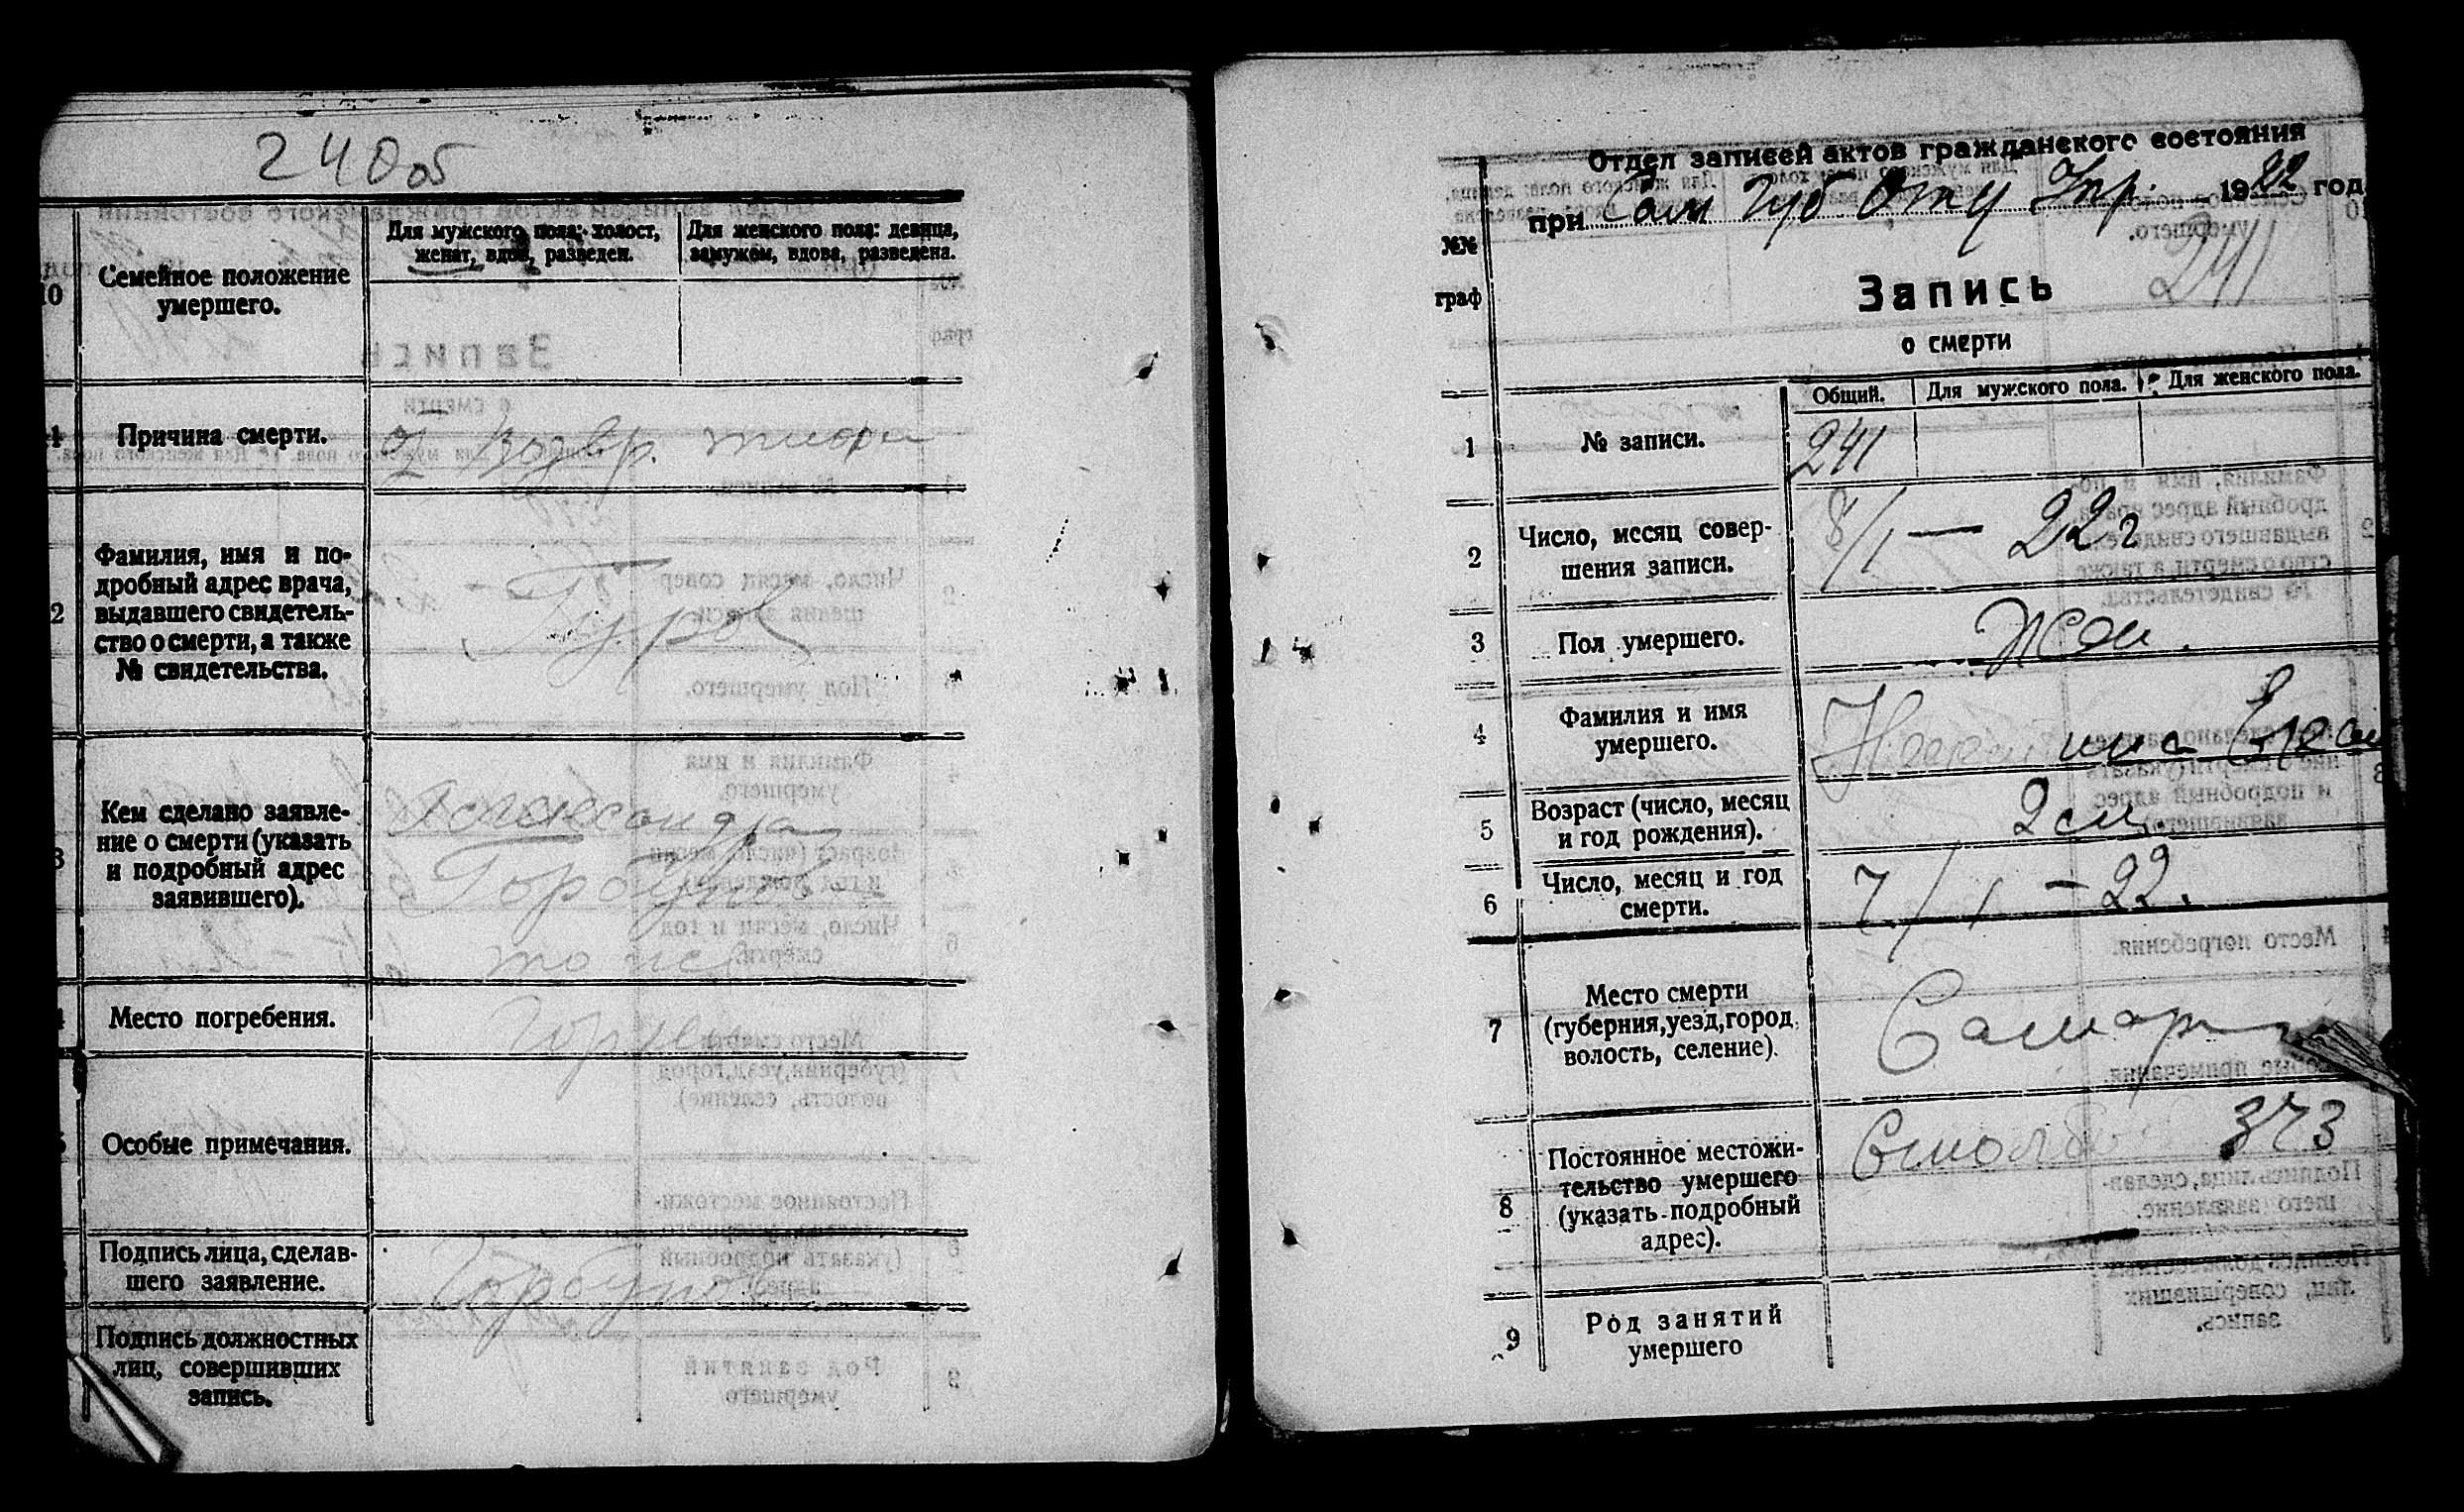 240 об
10
Семейное положение
умершего.
Для мужского пола: холост,
женат, вдов, разведен.
Для женского пола: девица,
замужем, вдова, разведена.
Причина смерти.
Возвр. тиф
2
Фамилия, имя и по-
дробный адрес врача,
выдавшего свидетель-
ство о смерти, а также
№ свидетельства.
Кем сделано заявле-
ние о смерти (указать
и подробный адрес
заявившего).
Александра
Горбунов
то же
Место погребения.
Особые примечания.
Подпись лица, сделав-
шего заявление.
Горбунов
Подпись должностных
лиц, совершивших
запись.
Отдел записей актов гражданского состояния
при Сам Губ Отд Упр. 1922 год
241
№№
граф
Запись
о смерти
Общий.
Для мужского пола.
Для женского пола.
1
№ записи.
241
2
Число, месяц совер-
шения записи.
8/1 — 22 г
3
Пол умершего.
Жен.
4
Фамилия и имя
умершего.
5
Возраст (число, месяц
и год рождения).
2 м.
6
Число, месяц и год
смерти.
7/1 — 22.
7
Место смерти
(губерния, уезд, город,
волость, селение).
Самара
8
Постоянное местожи-
тельство умершего
(указать подробный
адрес).
373
9
Род занятий
умершего